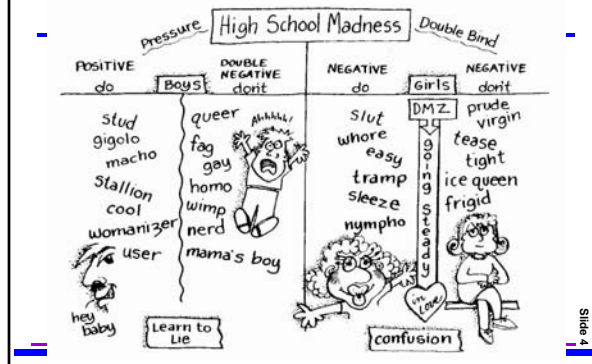 Pressure
High School Madness
Double Bind
POSITIVE
do
Boys
DOUBLE
NEGATIVE
don't
NEGATIVE
do
Girls
NEGATIVE
don't
stud
gigolo
macho
stallion
cool
womanizer
user
hey
baby
queer
fag
gay
homo
wimp
nerd
mama's boy
Ahhhhh!
Learn to
Lie
slut
whore
easy
tramp
sleeze
nympho
DMZ
going steady
in Love
prude
virgin
tease
tight
ice queen
frigid
confusion
Slide 4